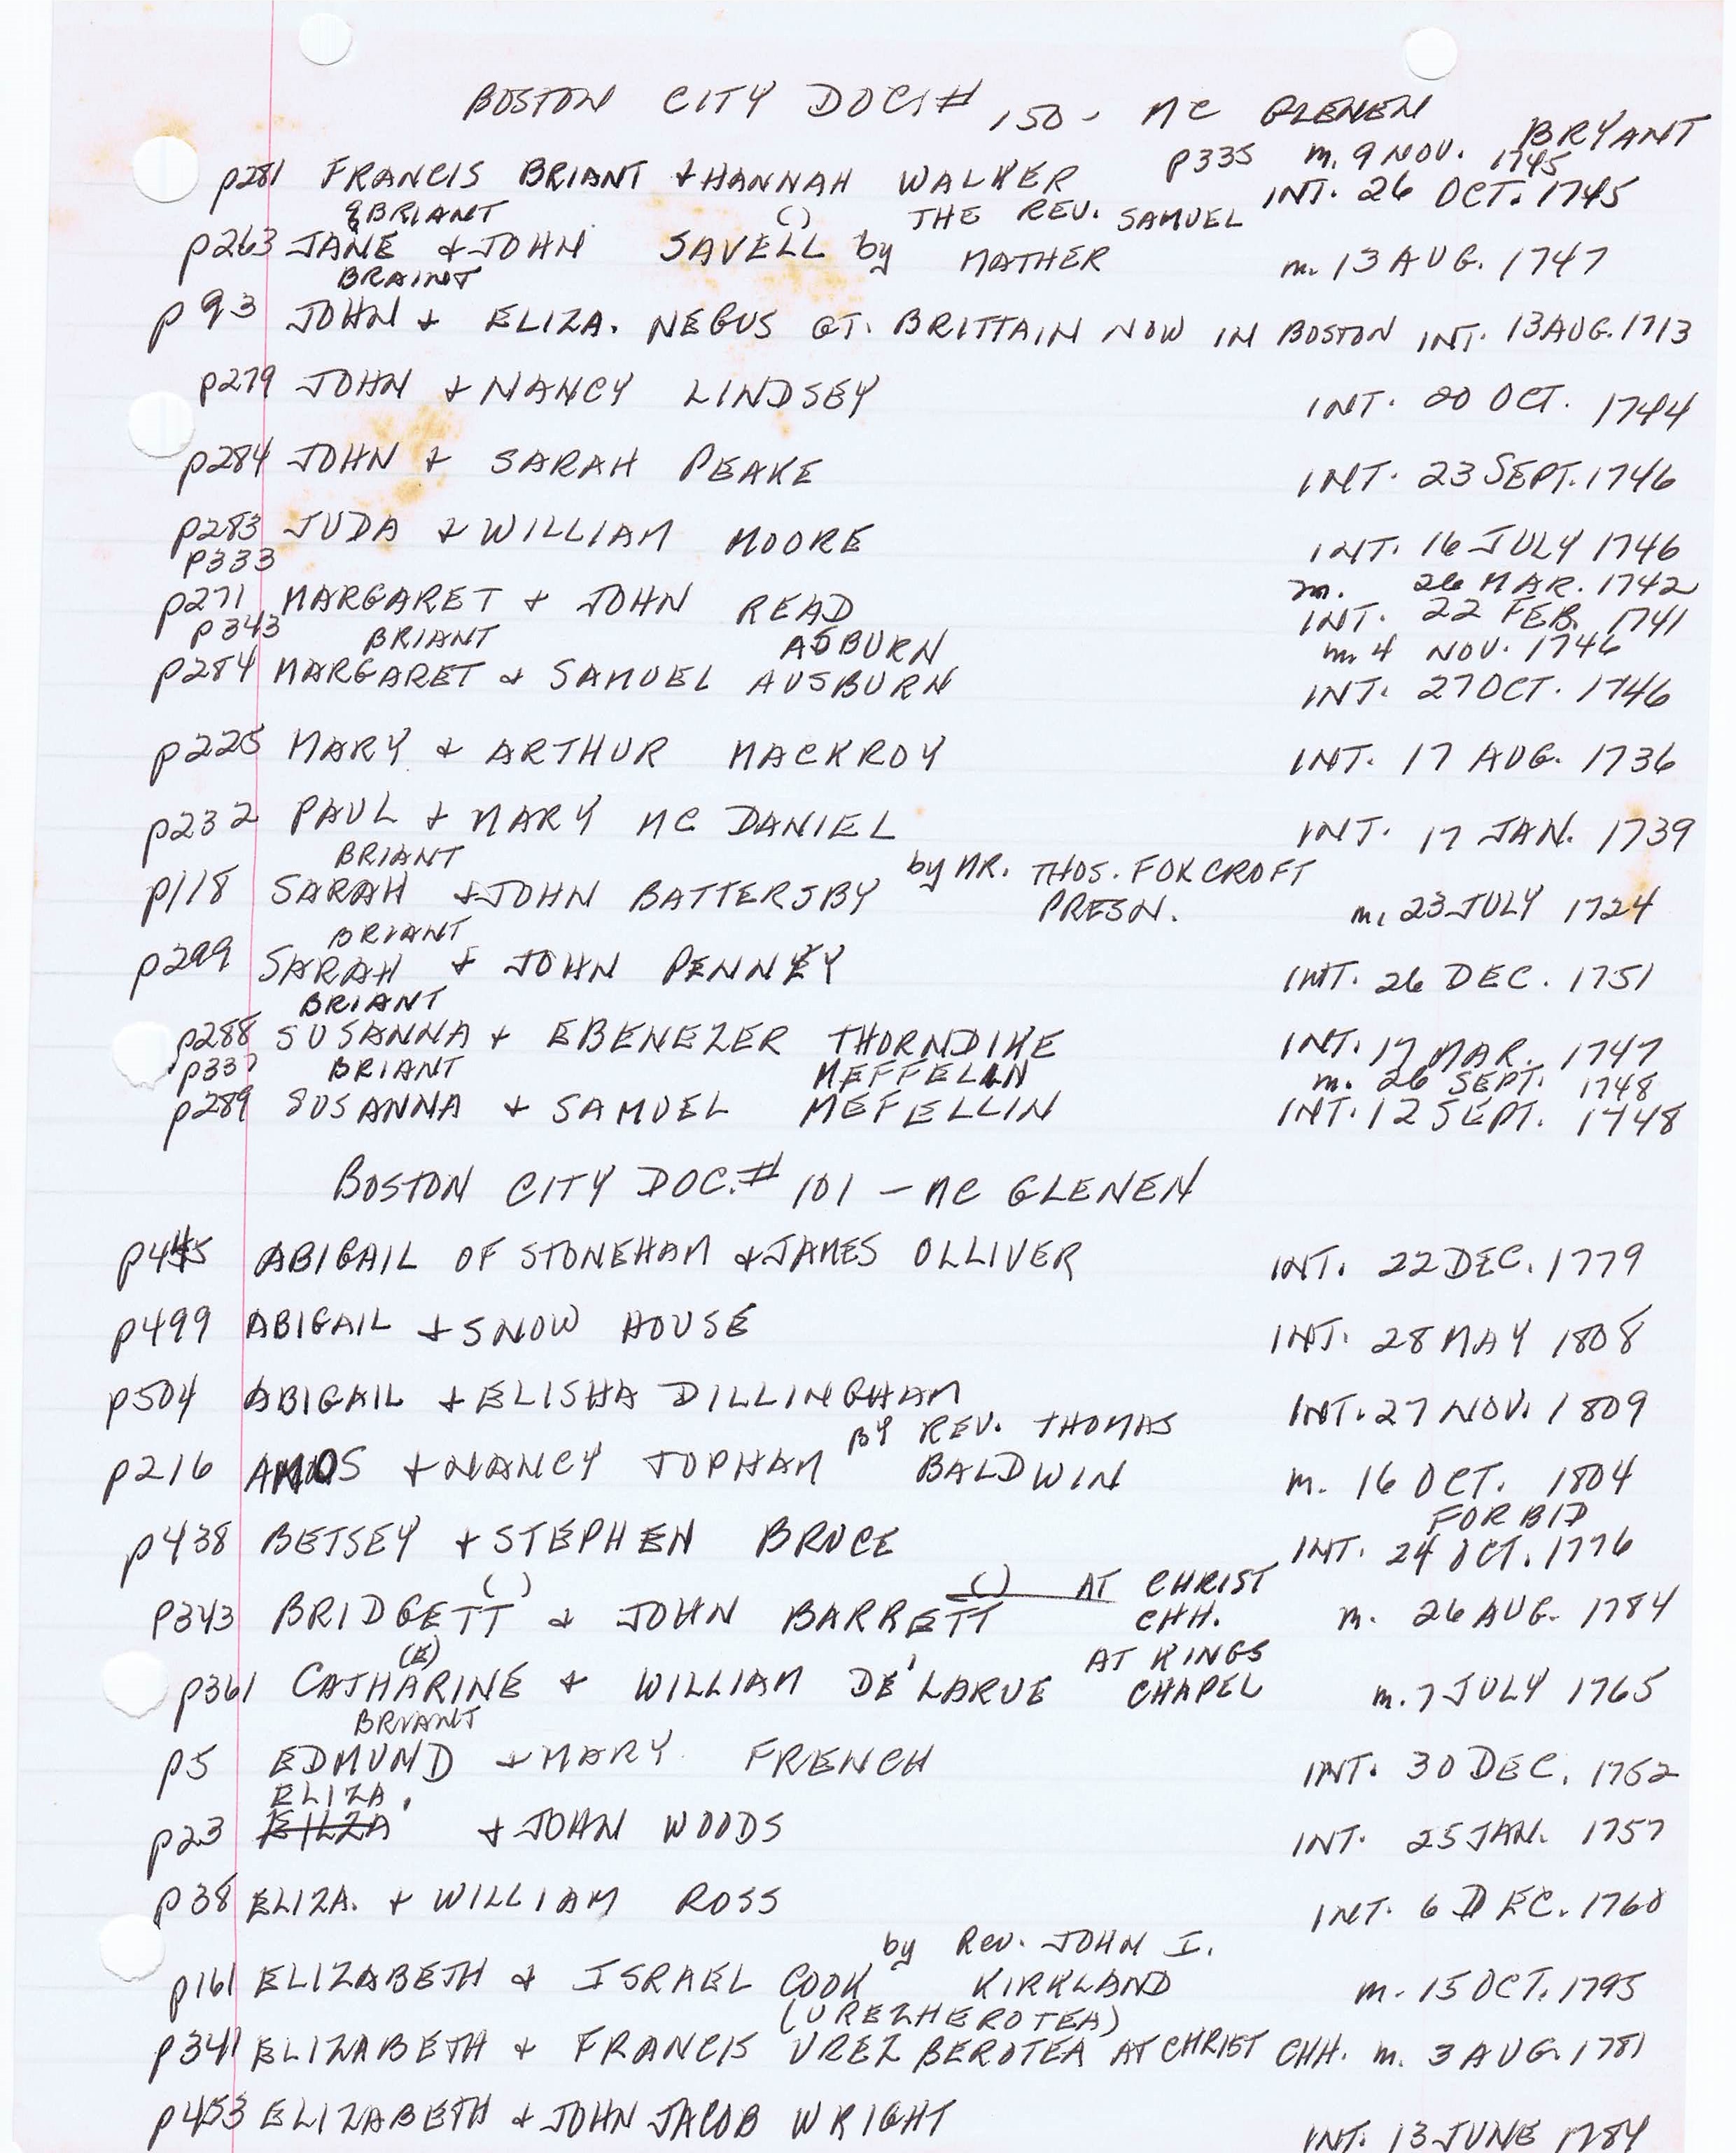 BOSTON CITY DOC.# 150 - MC GLENEN
BRYANT
p335 m. 9 NOV. 1745
p281 FRANCIS BRIANT & HANNAH WALKER INT. 26 OCT. 1745
&BRIANT ( ) THE REV. SAMUEL
p263 JANE & JOHN SAVELL by MATHER m. 13 AUG. 1747
BRAINT
p93 JOHN & ELIZA. NEGUS GT. BRITTAIN NOW IN BOSTON INT. 13 AUG. 1713
p279 JOHN & NANCY LINDSEY INT. 20 OCT. 1744
p284 JOHN & SARAH PEAKE INT. 23 SEPT. 1746
p283 JUDA & WILLIAM MOORE INT. 16 JULY 1746
p333 m. 26 MAR. 1742
p271 MARGARET & JOHN READ INT. 22 FEB. 1741
p343 BRIANT ASBURN m. 4 NOV. 1746
p284 MARGARET & SAMUEL AUSBURN INT. 27 OCT. 1746
p225 MARY & ARTHUR MACKROY INT. 17 AUG. 1736
p232 PAUL & MARY MC DANIEL INT. 17 JAN. 1739
BRIANT by MR. THOS. FOXCROFT
p118 SARAH & JOHN BATTERSBY PRESN. m. 23 JULY 1724
BRIANT
p299 SARAH & JOHN PENNEY INT. 26 DEC. 1751
BRIANT
p288 SUSANNA & EBENEZER THORNDIKE INT. 17 MAR. 1747
p337 BRIANT MEFFELIN m. 26 SEPT. 1748
p289 SUSANNA & SAMUEL MEFELLIN INT. 12 SEPT. 1748
BOSTON CITY DOC.# 101 - MC GLENEN
p445 ABIGAIL OF STONEHAM & JAMES OLLIVER INT. 22 DEC. 1779
p499 ABIGAIL & SNOW HOUSE INT. 28 MAY 1808
p504 ABIGAIL & ELISHA DILLINGHAM INT. 27 NOV. 1809
BY REV. THOMAS
p216 AMOS & NANCY TOPHAM BALDWIN m. 16 OCT. 1804
FORBID
p438 BETSEY & STEPHEN BRUCE INT. 24 OCT. 1776
( ) ( ) AT CHRIST
p343 BRIDGETT & JOHN BARRETT CHH. m. 26 AUG. 1784
(E) AT KINGS
p361 CATHARINE & WILLIAM DE'LARUE CHAPEL m. 7 JULY 1765
BRYANT
p5 EDMUND & MARY FRENCH INT. 30 DEC. 1752
ELIZA.
p23 EILZA & JOHN WOODS INT. 25 JAN. 1757
p38 ELIZA. & WILLIAM ROSS INT. 6 DEC. 1760
by Rev. JOHN I.
p161 ELIZABETH & ISRAEL COOK KIRKLAND m. 15 OCT. 1795
(UREZHEROTEA)
p341 ELIZABETH & FRANCIS UREZ BEROTEA AT CHRIST CHH. m. 3 AUG. 1781
p453 ELIZABETH & JOHN JACOB WRIGHT INT. 13 JUNE 1784